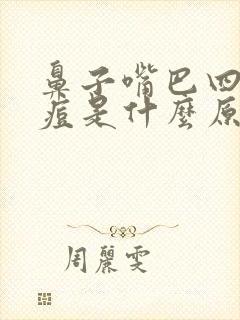 鼻子嘴巴四
痘是什麼原
周麗雯